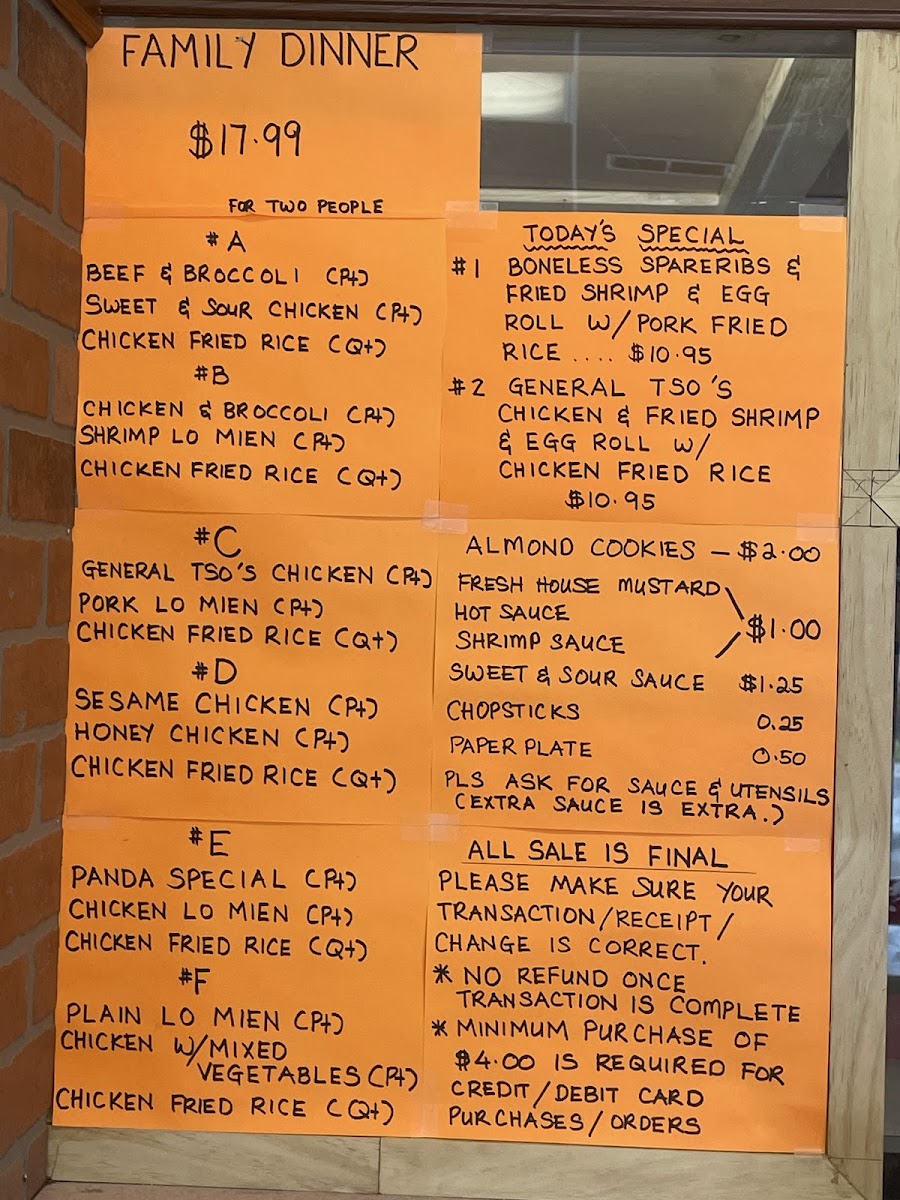 FAMILY DINNER
$17.99
FOR TWO PEOPLE
#A
BEEF & BROCCOLI (Pt)
SWEET & SOUR CHICKEN (Pt)
CHICKEN FRIED RICE (Qt)
#B
CHICKEN & BROCCOLI (Pt)
SHRIMP LO MIEN (Pt)
CHICKEN FRIED RICE (Qt)
#C
GENERAL TSO'S CHICKEN (Pt)
PORK LO MIEN (Pt)
CHICKEN FRIED RICE (Qt)
#D
SESAME CHICKEN (Pt)
HONEY CHICKEN (Pt)
CHICKEN FRIED RICE (Qt)
#E
PANDA SPECIAL (Pt)
CHICKEN LO MIEN (Pt)
CHICKEN FRIED RICE (Qt)
#F
PLAIN LO MIEN (Pt)
CHICKEN W/MIXED
VEGETABLES (Pt)
CHICKEN FRIED RICE (Qt)
TODAY'S SPECIAL
#1 BONELESS SPARERIBS &
FRIED SHRIMP & EGG
ROLL W/PORK FRIED
RICE .... $10.95
#2 GENERAL TSO'S
CHICKEN & FRIED SHRIMP
& EGG ROLL W/
CHICKEN FRIED RICE
$10.95
ALMOND COOKIES — $2.00
FRESH HOUSE MUSTARD
HOT SAUCE
SHRIMP SAUCE
$1.00
SWEET & SOUR SAUCE $1.25
CHOPSTICKS 0.25
PAPER PLATE 0.50
PLS ASK FOR SAUCE & UTENSILS
(EXTRA SAUCE IS EXTRA.)
ALL SALE IS FINAL
PLEASE MAKE SURE YOUR
TRANSACTION/RECEIPT/
CHANGE IS CORRECT.
* NO REFUND ONCE
TRANSACTION IS COMPLETE
* MINIMUM PURCHASE OF
$4.00 IS REQUIRED FOR
CREDIT/DEBIT CARD
PURCHASES/ORDERS